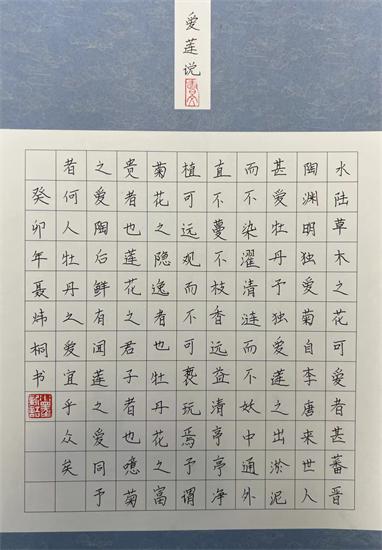 爱莲说
水陆草木之花可爱者甚蕃晋
陶渊明独爱菊自李唐来世人
甚爱牡丹予独爱莲之出淤泥
而不染濯清涟而不妖中通外
直不蔓不枝香远益清亭亭净
植可远观而不可亵玩焉予谓
菊花之隐逸者也牡丹花之富
贵者也莲花之君子者也噫菊
之爱陶后鲜有闻莲之爱同予
者何人牡丹之爱宜乎众矣
癸卯年聂炜桐书